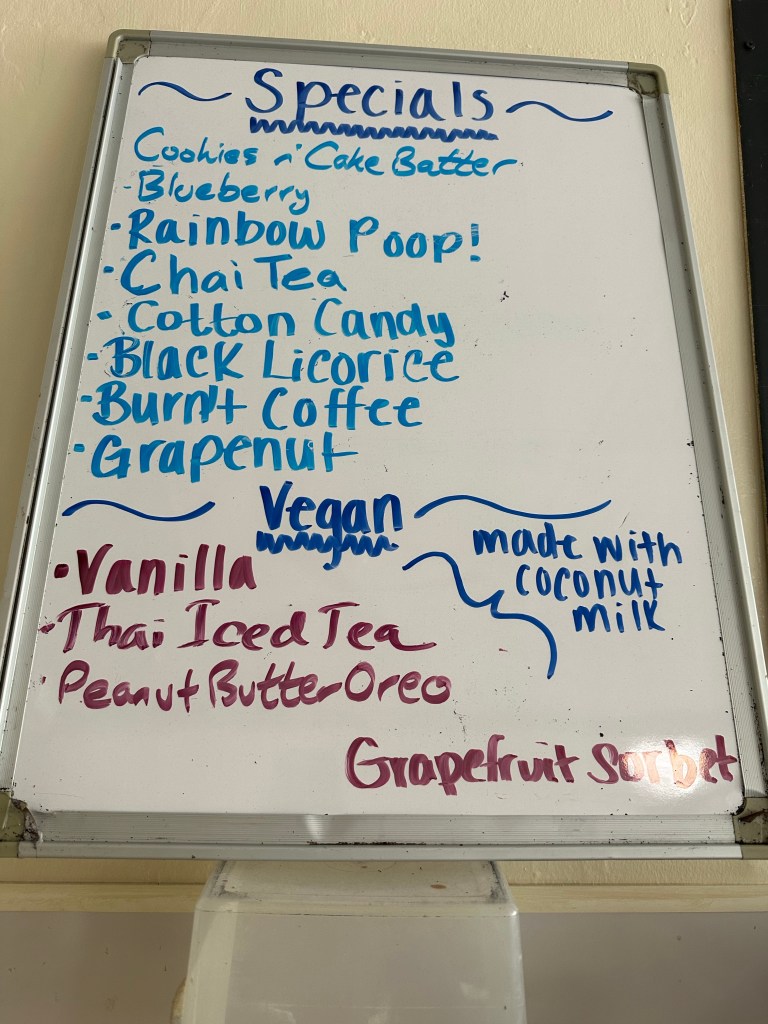 Specials
Cookies n' Cake Batter
· Blueberry
· Rainbow Poop!
· Chai Tea
· Cotton Candy
· Black Licorice
· Burn't Coffee
· Grapenut
Vegan
made with
coconut
milk
· Vanilla
· Thai Iced Tea
· Peanut Butter Oreo
Grapefruit Sorbet